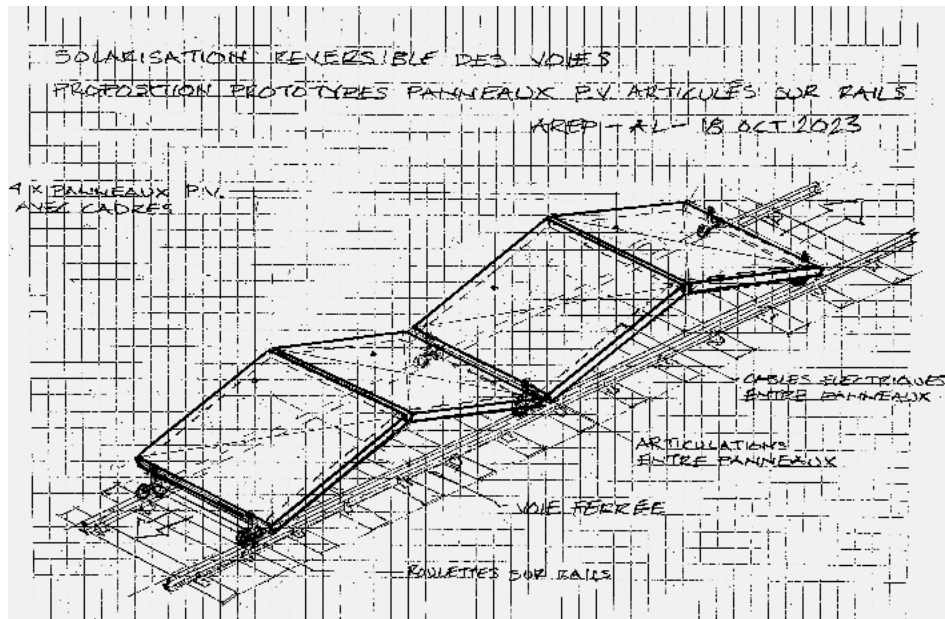 SOLARISATION REVERSIBLE DES VOIES
PROPOSITION PROTOTYPES PANNEAUX P.V. ARTICULÉS SUR RAILS
AREP - AL - 18 OCT 2023
4 x PANNEAUX P.V.
AVEC CADRES
CABLES ELECTRIQUES
ENTRE PANNEAUX
ARTICULATIONS
ENTRE PANNEAUX
VOIE FERRÉE
ROULETTES SUR RAILS